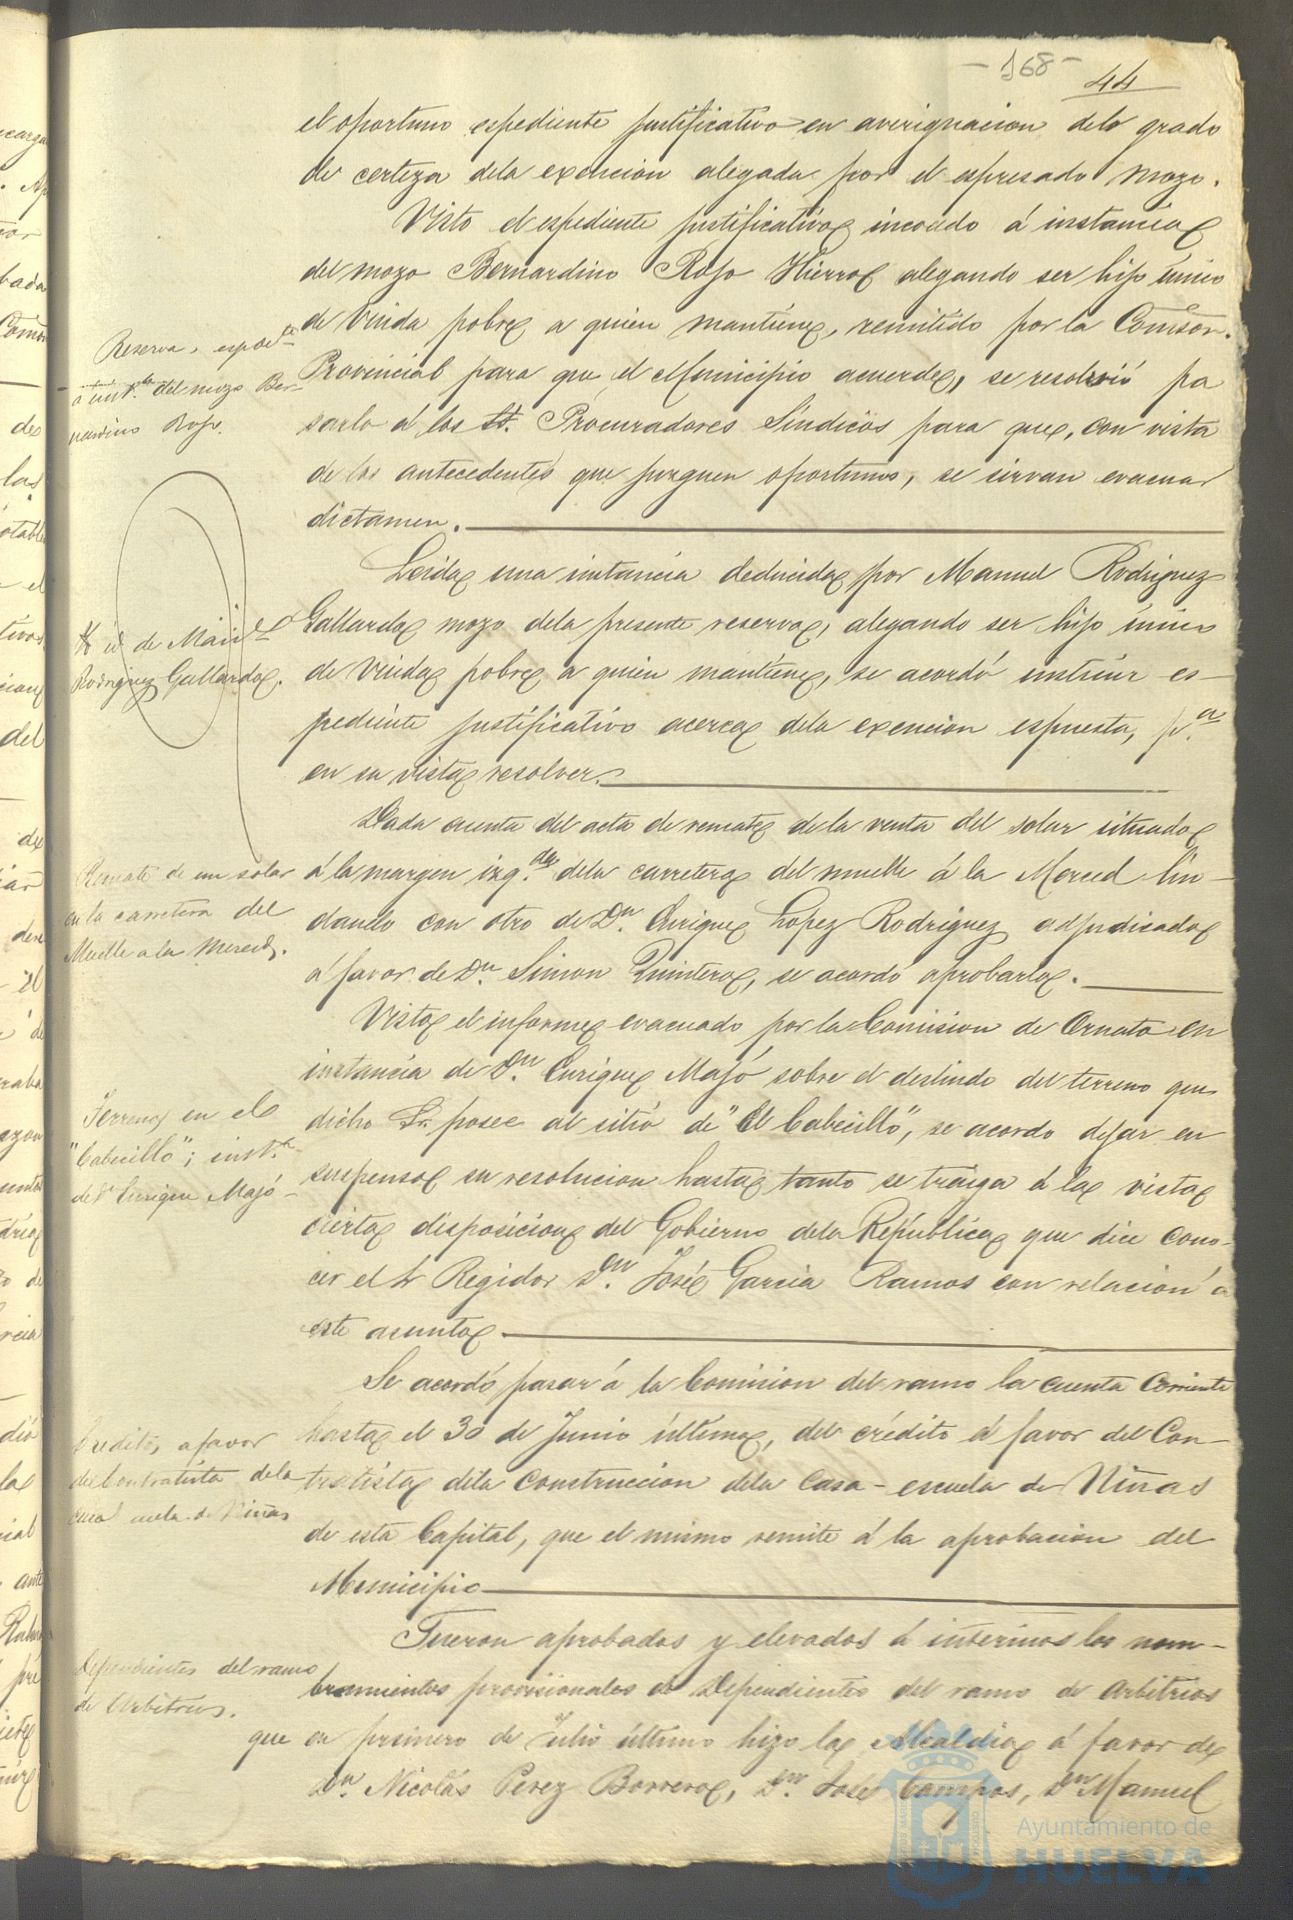 - 168 -
44
el oportuno espediente justificativo en averiguacion dela grado
de certeza dela exencion alegada por el espresado mozo.
Visto el espediente justificativo incoado á instancia
del mozo Bernardino Rojo Hierro alegando ser hijo único
de viuda pobre a quien mantiene, remitido por la Comision.
Reserva, espedte
á instª del mozo Ber-
nardino Rojo.
Provincial para que el Municipio acuerde, se resolvió pa
sarlo á los Sres. Procuradores Síndicos para que, con vista
de los antecedentes que juzguen oportunos, se sirvan evacuar
dictamen.
Leida una instancia deducida por Manuel Rodriguez
Gallardo mozo dela presente reserva, alegando ser hijo único
id de Manl
Rodriguez Gallardo.
de viuda pobre a quien mantiene, se acordó instruir es-
pediente justificativo acerca dela exencion espuesta, p.a
en su vista resolver.
Dada cuenta del acta de remate de la venta del solar situado
Remate de un solar
en la carretera del
Muelle a la Merced.
á la margen izq.da dela carretera del muelle á la Merced lin-
dando con otro de Dn. Enrique Lopez Rodriguez adjudicado
á favor de Dn. Simon Quintero, se acordó aprobarlo.
Visto el informe evacuado por la Comision de Ornato en
instancia de Dn. Enrique Majó sobre el deslinde del terreno que
Terreno en el
"Cabecillo"; inst.a
de Dn Enrique Majó
dicho Sr. posee al sitio de "El Cabecillo", se acordo dejar en
suspenso su resolucion hasta tanto se traiga á la vista
cierta disposicion del Gobierno dela República que dice cono-
cer el Sr Regidor Dn. José Garcia Ramos con relacion á
este asunto.
Se acordó pasar á la Comision del ramo la cuenta corriente
Credito, a favor
del Contratista dela
casa escuela de Niñas
hasta el 30 de Junio último, del crédito á favor del Con-
tratista dela construccion dela Casa-escuela de Niñas
de esta Capital, que el mismo remite á la aprobacion del
Municipio
Fueron aprobados y elevados á interinos los nom-
Dependientes del ramo
de Arbitrios.
bramientos provisionales de Dependientes del ramo de arbitrios
que en primero de Julio último hizo la Alcaldia á favor de
Dn. Nicolás Perez Borrero, Dn. José Campos, Dn Manuel
Ayuntamiento de
HUELVA